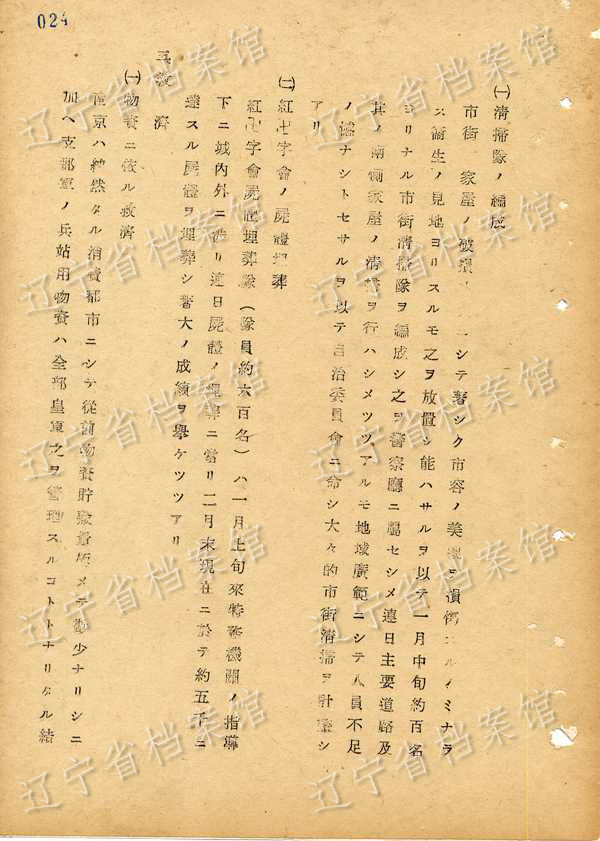 024
㈠清掃隊ノ編成
市街 家屋ノ破損 シテ著シク市容ノ美 ヲ損 スル ミナラ
ス衞生ノ見地ヨリスルモ之ヲ放置シ能ハサルヲ以テ一月中旬約百名
ヨリナル市街清掃隊ヲ編成シ之ヲ警察廳ニ屬セシメ連日主要道路及
其ノ兩側家屋ノ清掃ヲ行ハシメツツアルモ地域廣範ニシテ人員不足
ノ憾ナシトセサルヲ以テ自治委員會ニ命シ大々的市街清掃ヲ計畫シ
アリ
㈡紅卍字會ノ屍體埋葬
紅卍字會屍體埋葬隊(隊員約六百名)ハ一月上旬來特務機關ノ指導
下ニ城內外ニ渉リ連日屍體ノ埋葬ニ當リ二月末現在ニ於テ約五千ニ
達スル屍體ヲ埋葬シ著大ノ成績ヲ擧ケツツアリ
三 濟
㈠物資ニ依ル救濟
南京ハ純然タル消費都市ニシテ從前物資貯藏量極メテ尠少ナリシニ
加ヘ支那軍ノ兵站用物資ハ全部皇軍之ヲ管理スルコトトナリタル結
辽宁省档案馆
辽宁省档案馆
辽宁省档案馆
辽宁省档案馆
辽宁省档案馆
辽宁省档案馆
辽宁省档案馆
辽宁省档案馆